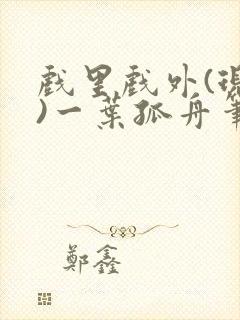 戲里戲外(現
)一葉孤舟
鄭鑫